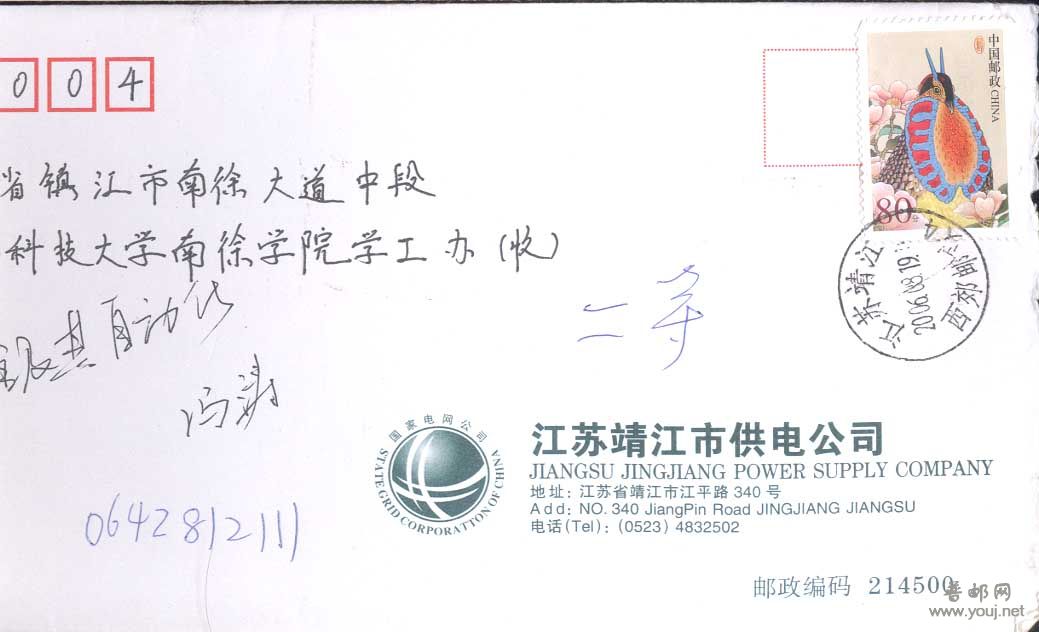 004
中国邮政 CHINA
80分
省镇江市南徐大道中段
科技大学南徐学院学工办(收)
江苏靖江
2006.08.19.1
西郊邮
自动化
冯涛
二等
0642812111
国家电网公司
STATE GRID CORPORATTON OF CHINA
江苏靖江市供电公司
JIANGSU JINGJIANG POWER SUPPLY COMPANY
地址：江苏省靖江市江平路 340 号
Add: NO. 340 JiangPin Road JINGJIANG JIANGSU
电话(Tel)：(0523) 4832502
邮政编码 214500
普邮网
www.youj.net